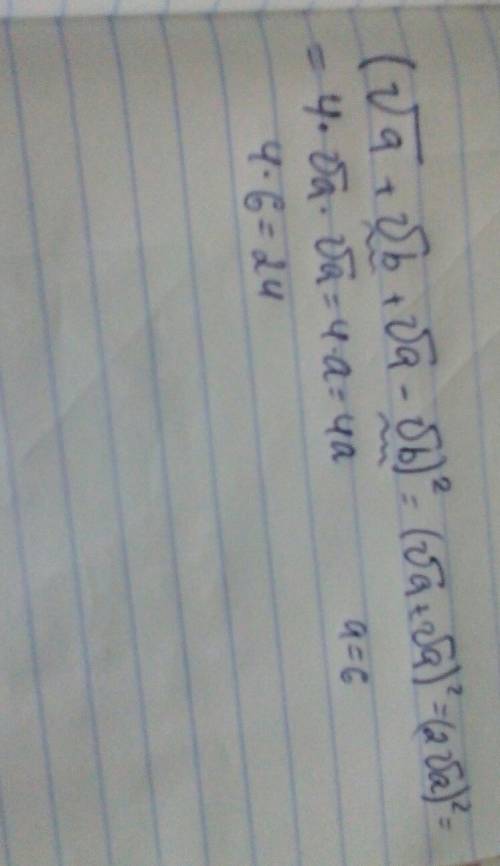 (√a + √b + √a - √b)² = (√a + √a)² = (2√a)² =
= 4 · √a · √a = 4 · a = 4a a = 6
4 · 6 = 24